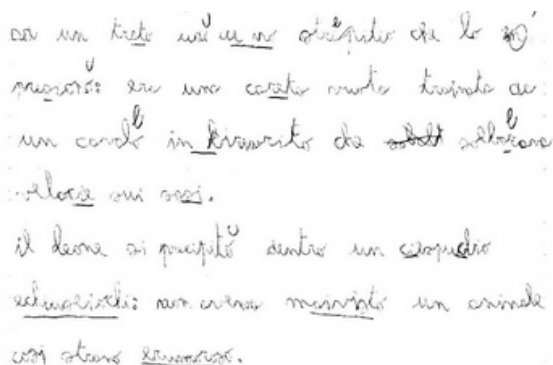 da un trato udì u no strepitio che lo
presiorò: era una carata vuota trainata da
un cavalo in birarito che soltarava
velocie sui sasi.
il leone si precipitò dentro un ciespulio
e chiuse iochi: non aveva maivisto un animale
così strano erumoroso.